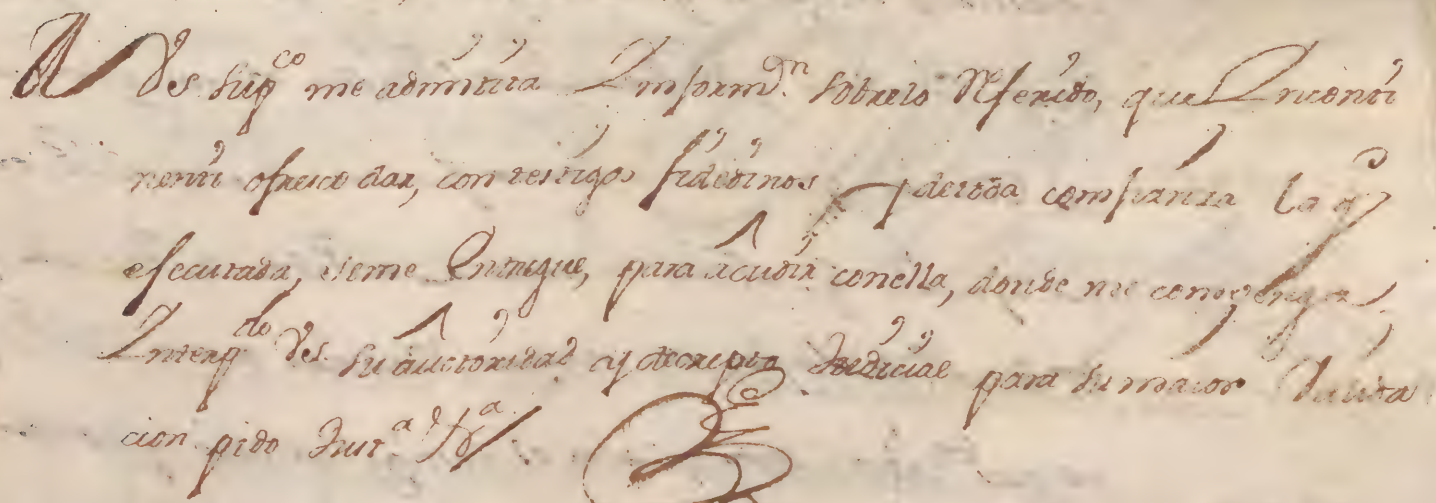 A Vds supco me admitira Informn sobrelo Referido, que Inconti
nenti ofresco dar, con testigos fidedinos y detoda comfianza la q
efecutada, seme Entregue, para acudir conella, donde me comvenga
Interpdo Vds su auctoridad y decrepto Judicial para sumaior Valida
cion pido Justa &a